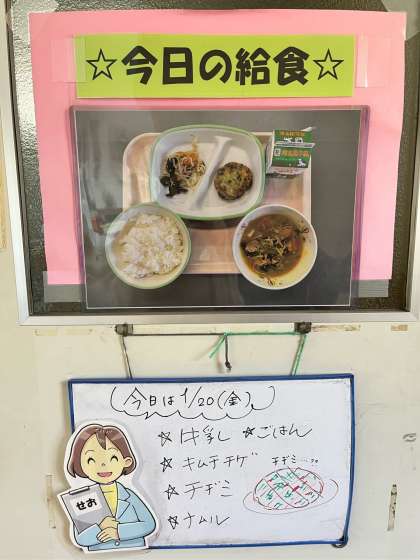 ☆今日の給食☆
今日は1/20(金)。
☆牛乳 ☆ごはん
☆キムチチゲ
☆チヂミ
☆ナムル
チヂミ…??
せお